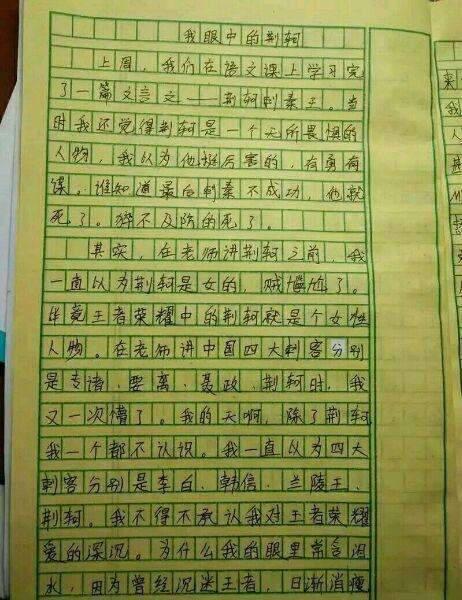 我眼中的荆轲
上周，我们在语文课上学习完
了一篇文言文——荆轲刺秦王。当
时我还觉得荆轲是一个无所畏惧的
人物，我认为他挺厉害的，有勇有
谋。谁知道最后刺秦不成功，他就
死了。猝不及防的死了。
其实，在老师讲荆轲之前，我
一直以为荆轲是女的，贼尴尬了。
毕竟王者荣耀中的荆轲就是个女性
人物。在老师讲中国四大刺客分别
是专诸、要离、聂政、荆轲时，我
又一次懵了。我的天啊，除了荆轲，
我一个都不认识。我一直以为四大
刺客分别是李白、韩信、兰陵王、
荆轲。我不得不承认我对王者荣耀
爱的深沉。为什么我的眼里常含泪
水，因为曾经沉迷王者，日渐消瘦
来
我